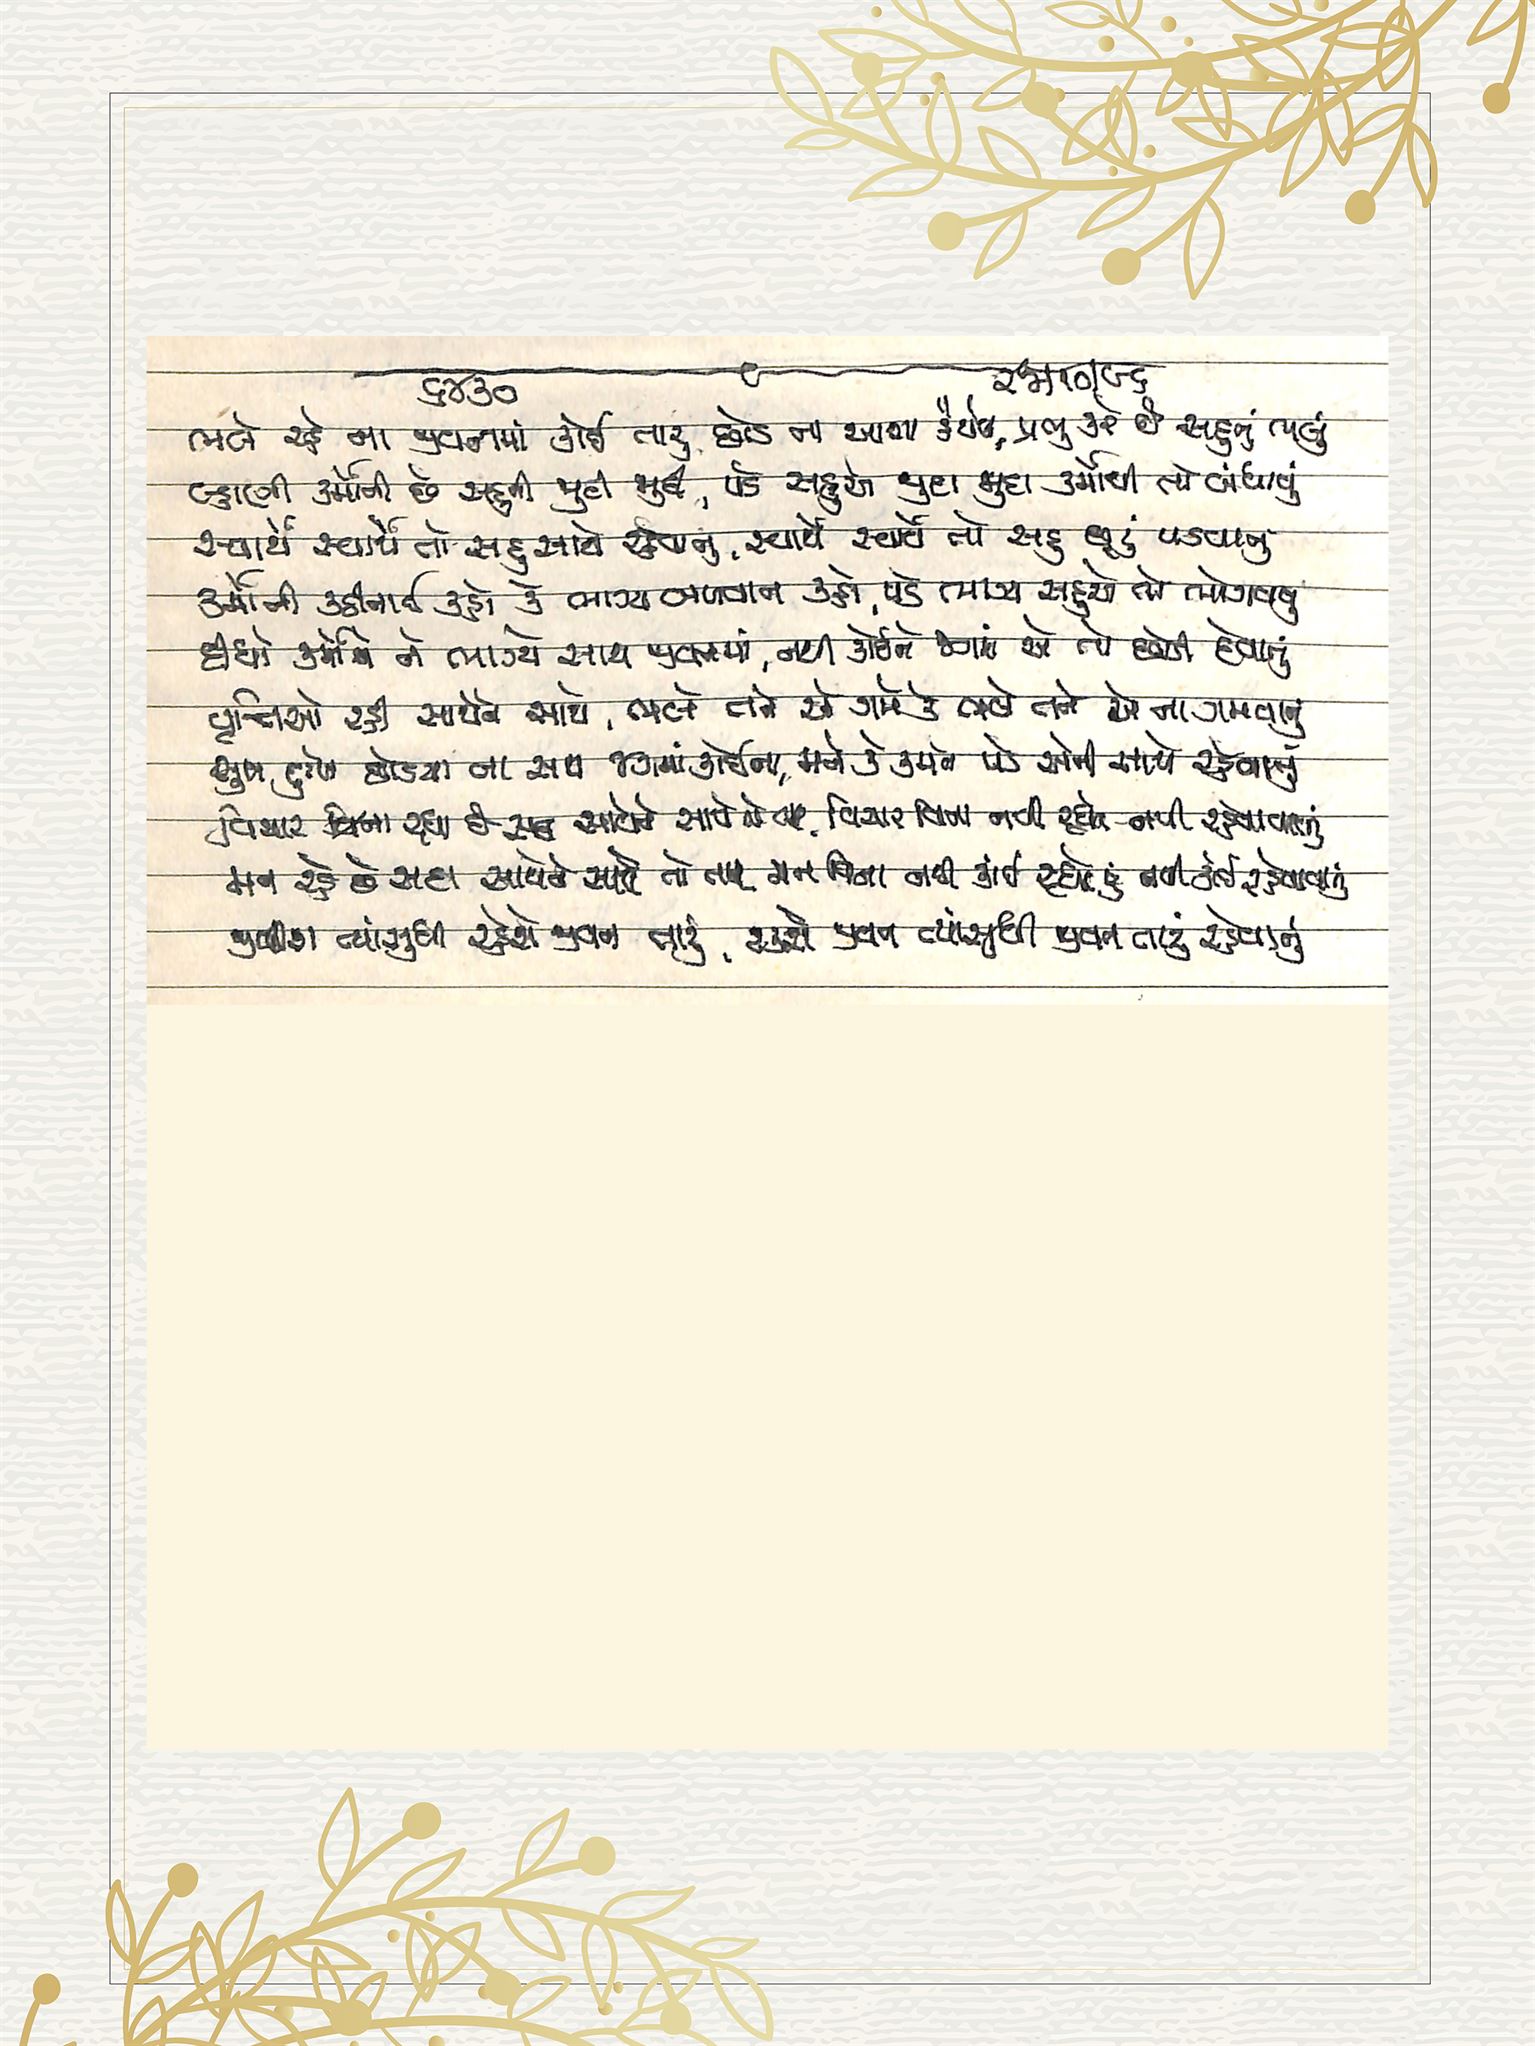 ૬૪૩૦
ભલે રહે ના જીવનમાં કોઈ તારૂ, છોડ ના આશા હૈયેથી, પ્રભુ કરે છે સહુનું ભલું
લ્હાણી કર્મોની છે સહુની જુદી જુદી, પડે સહુએ જુદા જુદા કર્મોથી તો બંધાવું
સ્વાર્થે સ્વાર્થે તો સહુ સાથે રહેવાનું, સ્વાર્થે સ્વાર્થે તો સહુ છૂટું પડવાનું
કર્મોની કઠીનાઈ કહો કે ભાગ્ય બળવાન કહો, પડે ભાગ્ય સહુએ તો ભોગવવું
દીધો કર્મોએ ને ભાગ્યે સાથ જીવનમાં, નથી કોઈને જગમાં એ તો છોડી દેવાનું
વૃત્તિઓ રહી સાથેને સાથે, ભલે તને એ ગમે કે ભલે તને એ ના ગમવાનું
સુખ દુઃખ છોડયા ના સાથ જગમાં કોઈના, મને કે કમને પડે એની સાથે રહેવાનું
વિચાર વિના રહ્યા છે સાથેને સાથે, વિચાર વિના નથી રહ્યો નથી રહેવાવાનું
મન રહે છે સદા સાથેને સાથે તો તારૂ, મન વિના નથી કાંઈ રહ્યું નથી કાંઈ રહેવાવાનું
ત્યાંસુધી રહેશે જીવન તારું, રહેશે જીવન ત્યાંસુધી જીવન તારું રહેવાનું